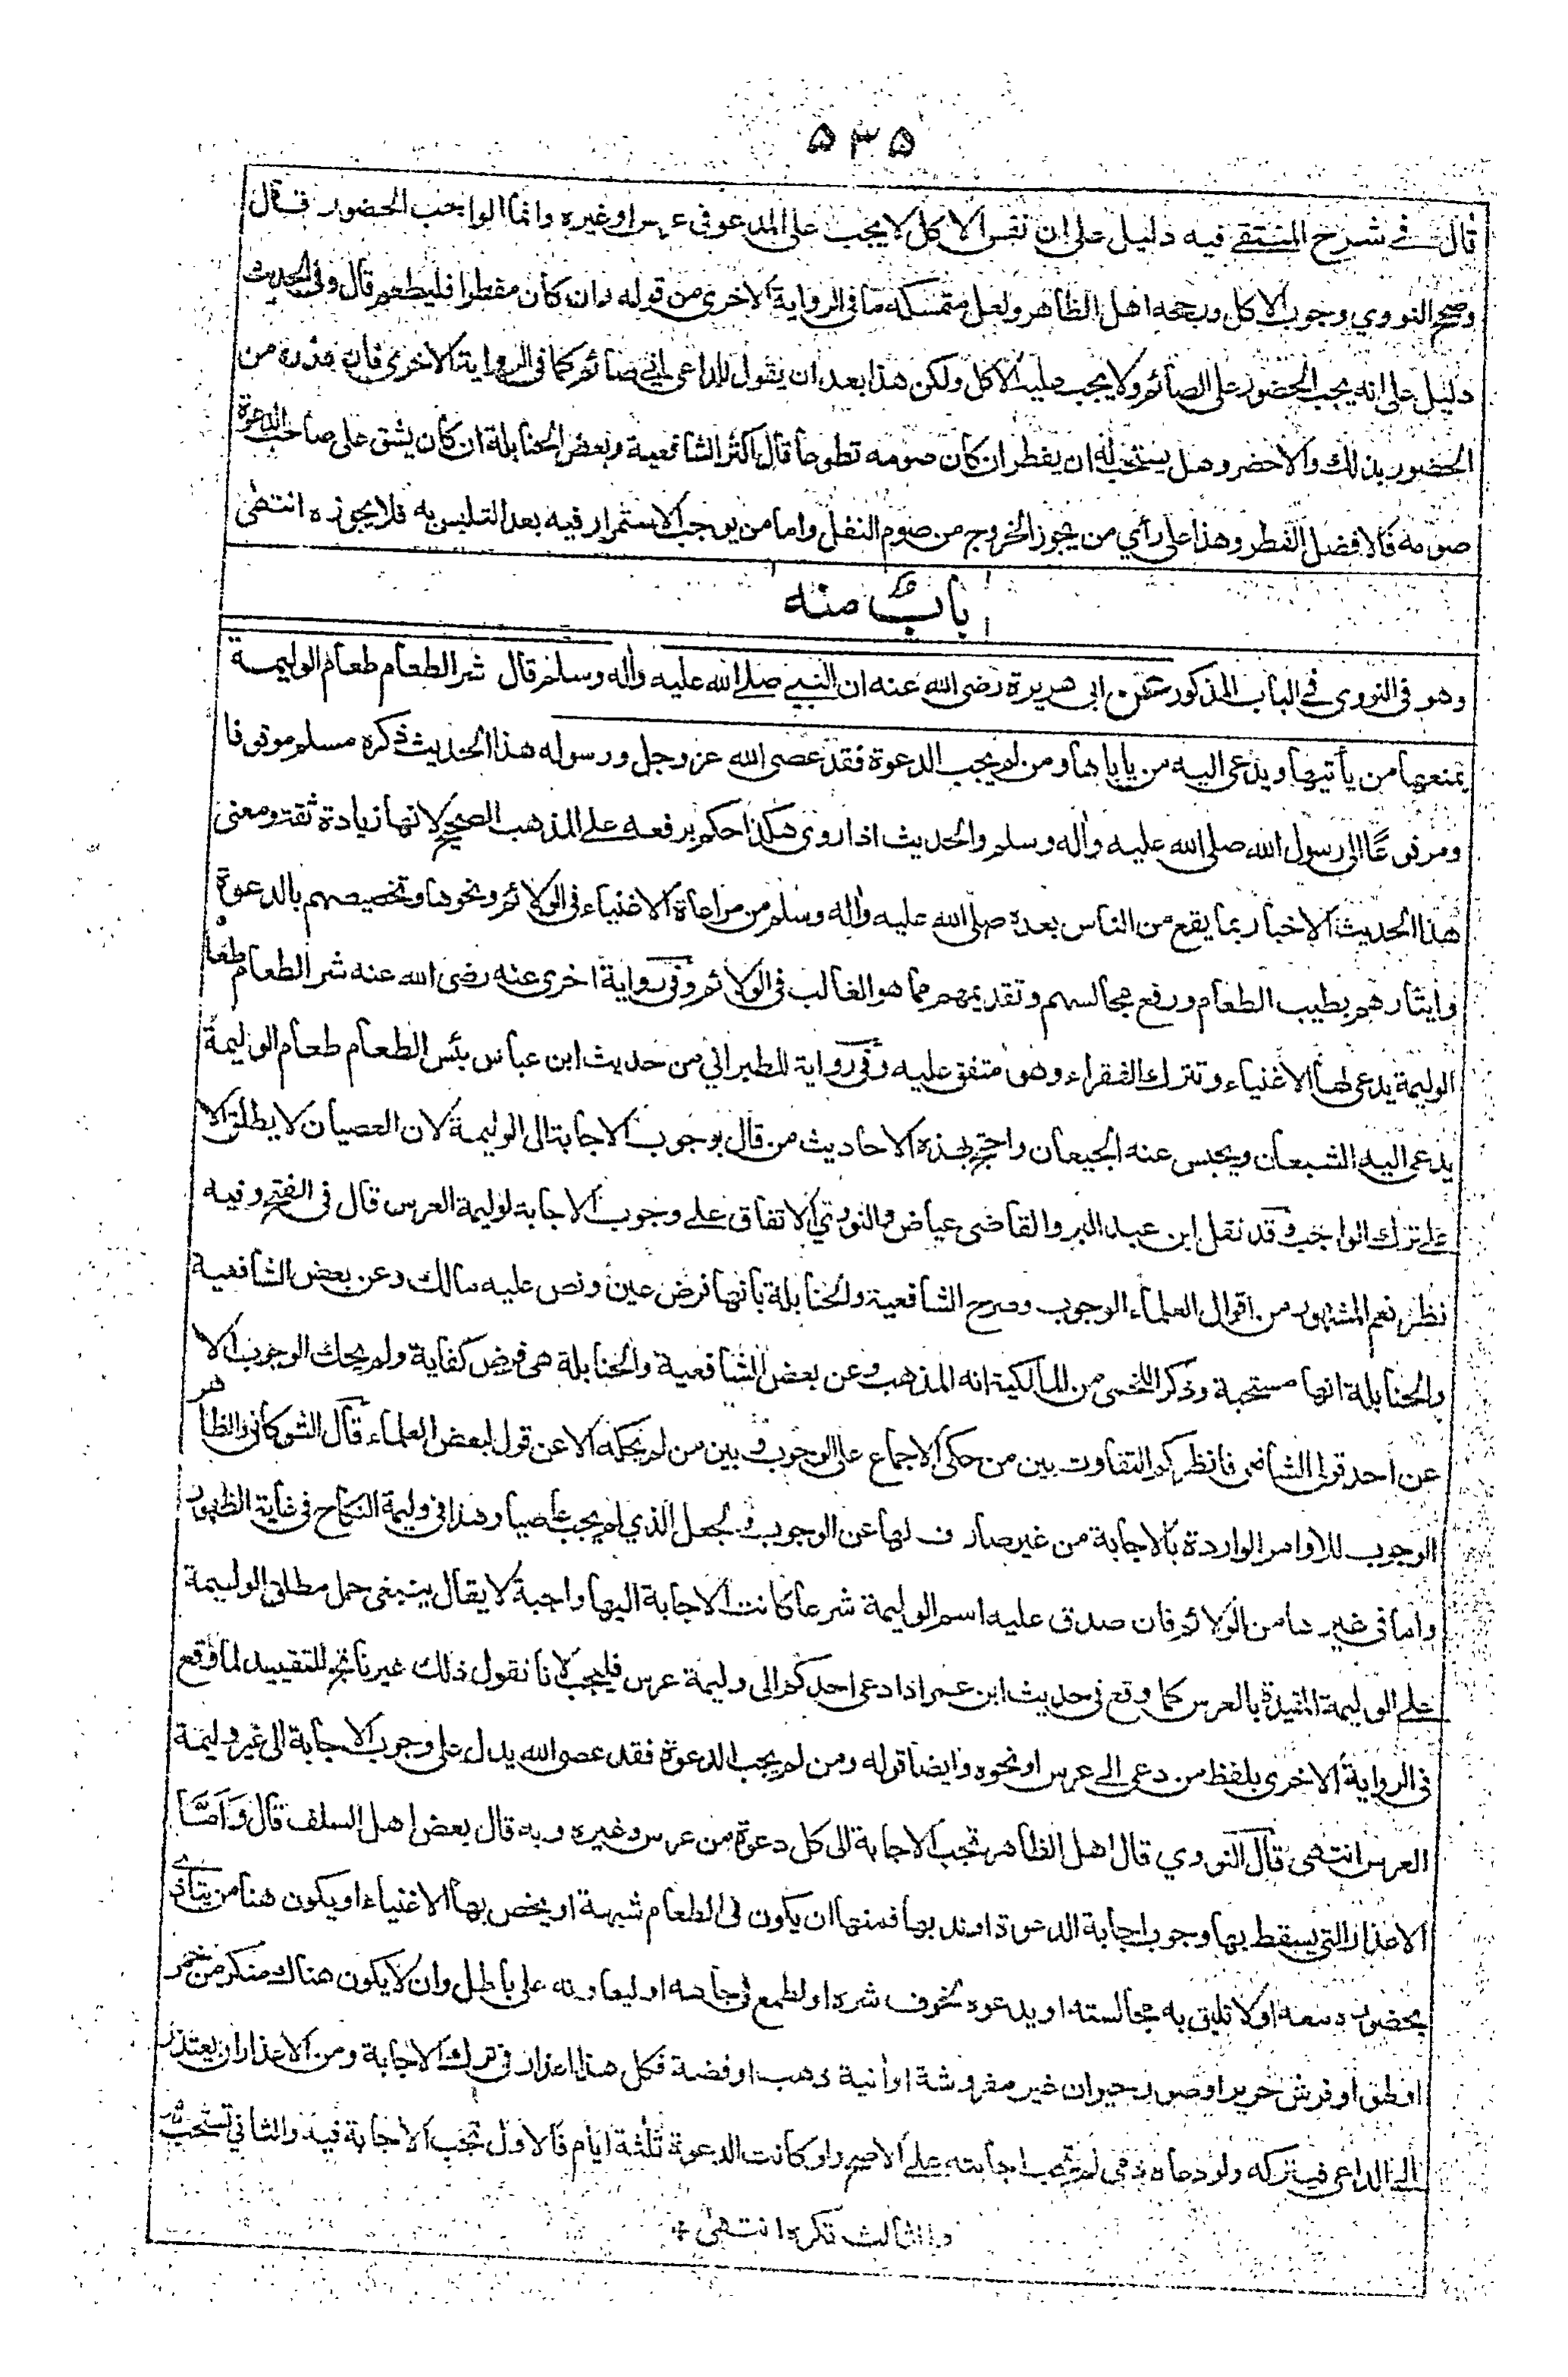 ٥٣٥
قال في شرح المنتقى فيه دليل على ان نفس الاكل لا يجب على المدعو في عرس او غيره وانما الواجب الحضور قال
وصحح النووي وجوب الاكل ورجحه اهل الظاهر ولعل متمسكه ما في الرواية الاخرى من قوله وان كان مفطرا فليطعم قال وفي الحديث
دليل على انه يجب الحضور على الصائم ولا يجب عليه الاكل ولكن هذا بعد ان يقول للداعي اني صائم كما في الرواية الاخرى فان عذره من
الحضور بذلك والا حضر وهل يستحب له ان يفطر ان كان صومه تطوعا قال اكثر الشافعية وبعض الحنابلة ان كان يشق على صاحب الدعوة
صومه فالافضل الفطر وهذا على رأي من يجوز الخروج من صوم النفل واما من يوجب الاستمرار فيه بعد التلبس به فلا يجوزه انتهى
باب منه
وهو في النووي في الباب المذكور عن ابي هريرة رضي الله عنه ان النبي صلى الله عليه واله وسلم قال شر الطعام طعام الوليمة
يمنعها من يأتيها ويدعى اليه من ياباها ومن لم يجب الدعوة فقد عصى الله عز وجل ورسوله هذا الحديث ذكره مسلم موقوفا
ومرفوعا الى رسول الله صلى الله عليه واله وسلم والحديث اذا روى هكذا حكم برفعه على المذهب الصحيح لانها زيادة ثقة ومعنى
هذا الحديث الاخبار بما يقع من الناس بعده صلى الله عليه واله وسلم من مراعاة الاغنياء في الولائم ونحوها وتخصيصهم بالدعوة
وايثارهم بطيب الطعام ورفع مجالسهم وتقديمهم مما هو الغالب في الولائم وفي رواية اخرى عنه رضي الله عنه شر الطعام طعام
الوليمة يدعى لها الاغنياء وتترك الفقراء وهو متفق عليه وفي رواية للطبراني من حديث ابن عباس بئس الطعام طعام الوليمة
يدعى اليه الشبعان ويحبس عنه الجيعان واحتج بهذه الاحاديث من قال بوجوب الاجابة الى الوليمة لان العصيان لا يطلق الا
على ترك الواجب وقد نقل ابن عبد البر والقاضي عياض والنووي الاتفاق على وجوب الاجابة لوليمة العرس قال في الفتح وفيه
نظر نعم المشهور من اقوال العلماء الوجوب وصرح الشافعية والحنابلة بانها فرض عين ونص عليه مالك وعن بعض الشافعية
والحنابلة انها مستحبة وذكر اللخمي من المالكية انه المذهب وعن بعض الشافعية والحنابلة هي فرض كفاية ولم يحك الوجوب الا
عن احد قولي الشافعي فانظر كم التفاوت بين من حكى الاجماع على الوجوب وبين من لم يحكه الا عن قول لبعض العلماء قال الشوكاني والظاهر
الوجوب للاوامر الواردة بالاجابة من غير صارف لها عن الوجوب ولجعل الذي لم يجب عاصيا وهذا في وليمة النكاح في غاية الظهور
واما في غيرها من الولائم فان صدق عليه اسم الوليمة شرعا كانت الاجابة اليها واجبة لا يقال ينبغي حمل مطلق الوليمة
على الوليمة المقيدة بالعرس كما وقع في حديث ابن عمر اذا دعى احدكم الى وليمة عرس فليجب لانا نقول ذلك غير ناتج للتقييد لما وقع
في الرواية الاخرى بلفظ من دعى الى عرس او نحوه وايضا قوله ومن لم يجب الدعوة فقد عصى الله يدل على وجوب الاجابة الى غير وليمة
العرس انتهى قال النووي قال اهل الظاهر تجب الاجابة الى كل دعوة من عرس وغيره وبه قال بعض اهل السلف قال وَامَّا
الاعذار التي يسقط بها وجوب اجابة الدعوة او ندبها فمنها ان يكون في الطعام شبهة او يخص بها الاغنياء او يكون هنا من يتأذى
بحضوره معه او لا تليق به مجالسته او يدعوه لخوف شره او لطمع في جاهه او ليعاونه على باطل وان لا يكون هناك منكر من خمر
او لهو او فرش حرير او صور حيوان غير مفروشة او آنية ذهب او فضة فكل هذا اعذار في ترك الاجابة ومن الاعذار ان يعتذر
الى الداعي فيتركه ولو دعاه ذمي لم تجب اجابته على الاصح ولو كانت الدعوة ثلثة ايام فالاول تجب الاجابة فيه والثاني تستحب
والثالث تكره انتهى +